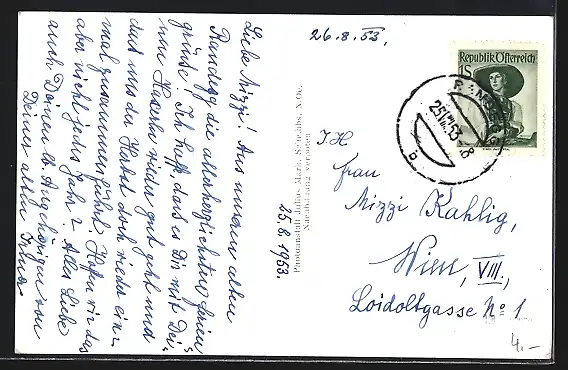 26.8.53.
Liebe Mizzi! Aus unserem alten
Randegg die allerherzlichsten Ferien-
grüsse! Ich hoffe, dass es Dir mit Dei-
nem Herzerl wieder gut geht und
dass uns der Herbst doch wieder ein-
mal zusammenführt. Hofen wir das
aber nicht jedes Jahr? Alles Liebe
auch Deinen lb. Angehörigen von
Deiner alten
25.8.1953.
Photoanstalt Julius Mark, Scheibbs, N.Oe.
Nachahmung verboten
Republik Österreich
1S
25.VIII.53
b
I.H.
Frau
Mizzi Kahlig,
Wien, VIII.,
Loidoltgasse No 1
4.-